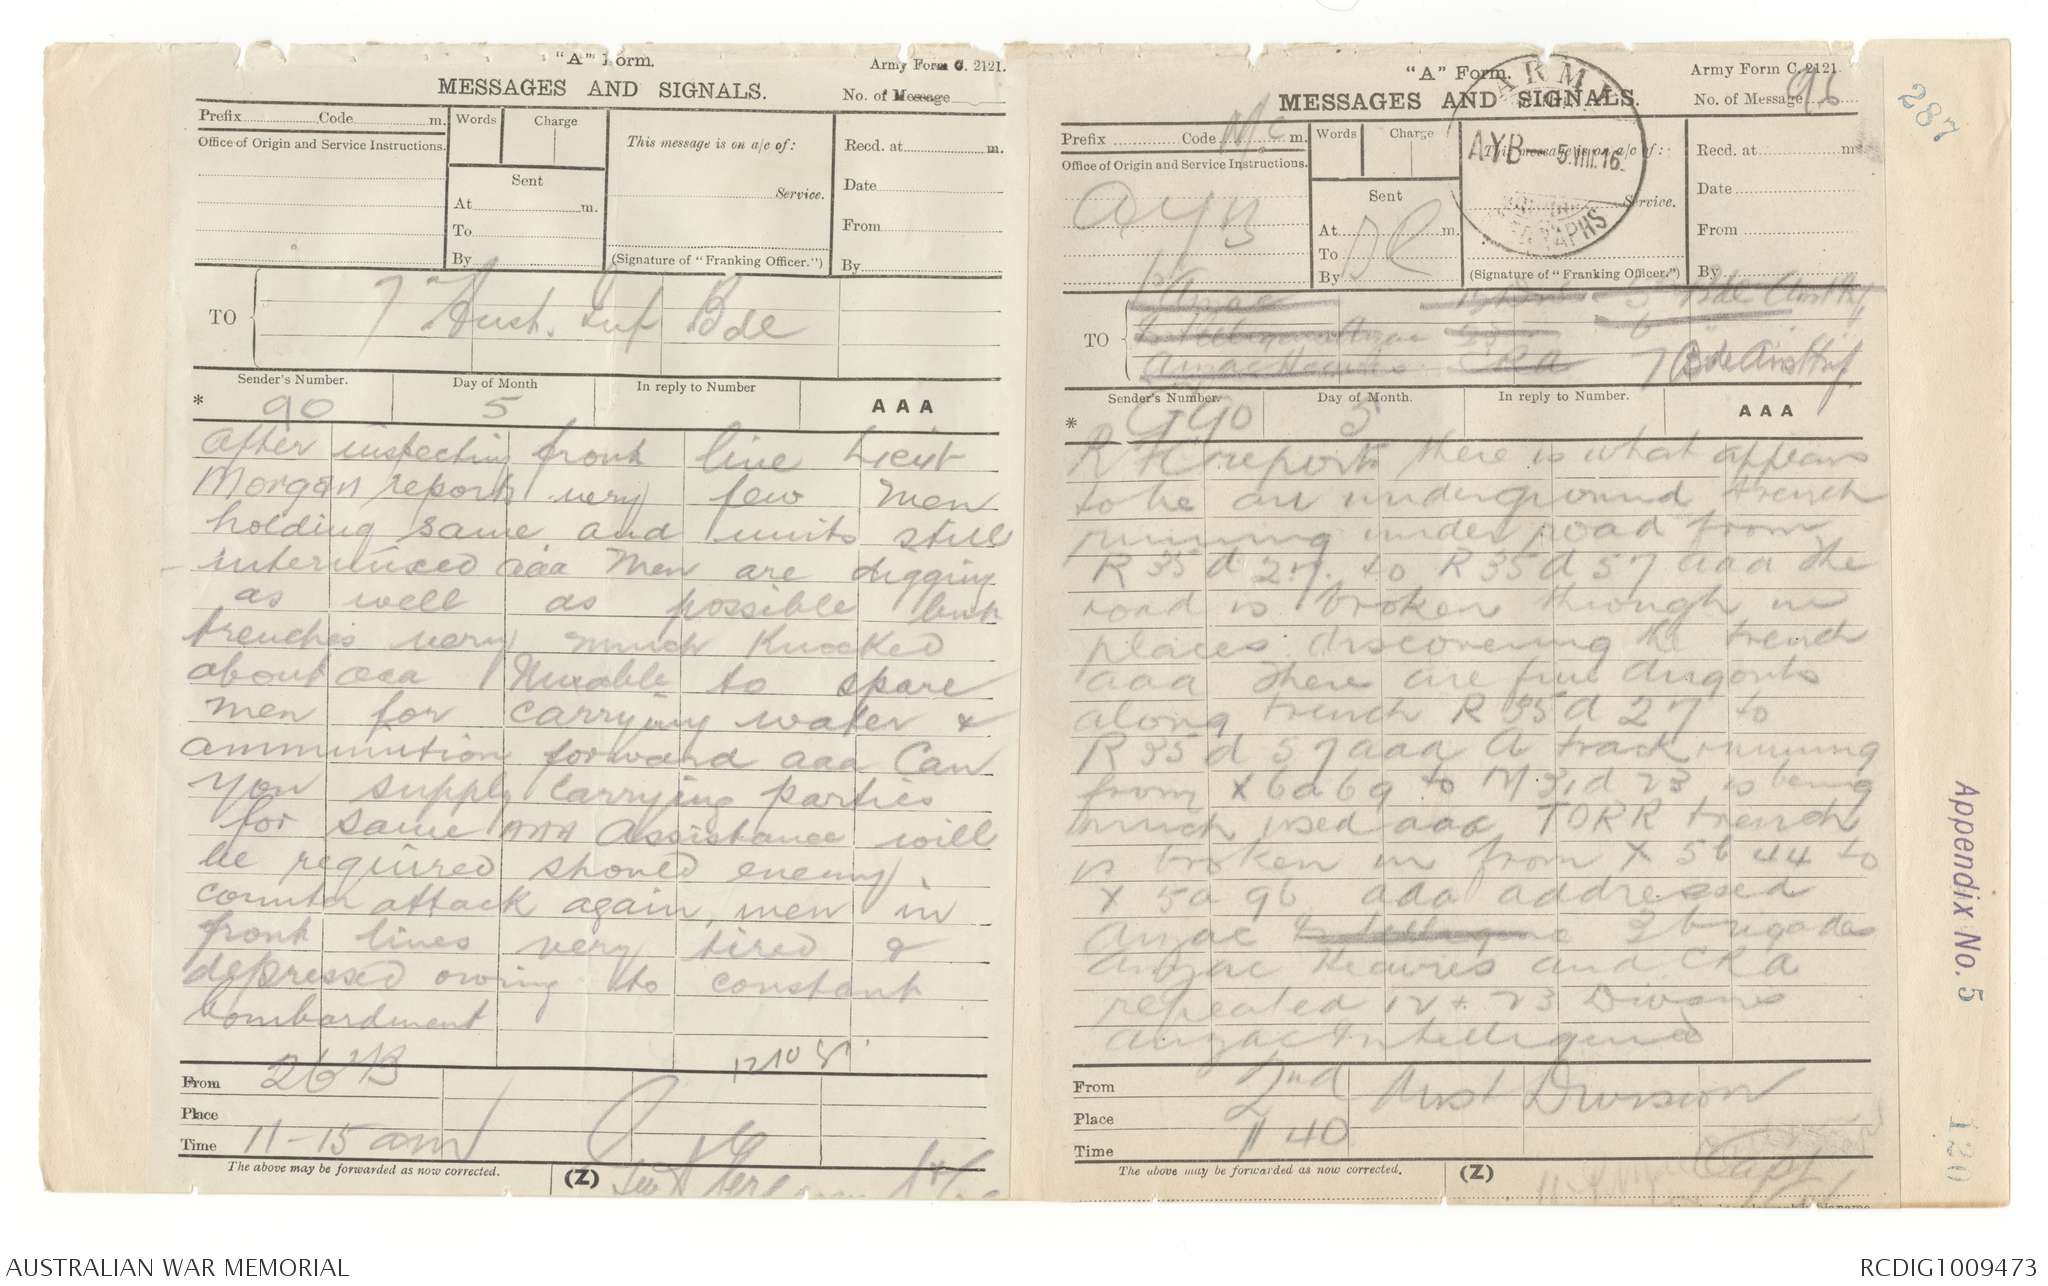 "A" Form.
Army Form C. 2121.
MESSAGES AND SIGNALS.
No. of Message
Prefix Code m.
Words
Charge
Office of Origin and Service Instructions.
This message is on a/c of:
Recd. at m.
Sent
Service.
Date
At m.
From
To
By
(Signature of "Franking Officer.")
By
TO
7 Aust. Inf Bde
Sender's Number.
Day of Month
In reply to Number
AAA
* 90
5
After inspecting front line Lieut
Morgan reports very few men
holding same and units still
intermixed aaa Men are digging
as well as possible but
trenches very much knocked
about aaa Unable to spare
men for carrying water &
ammunition forward aaa Can
you supply carrying parties
for same AAA Assistance will
be required should enemy
counter attack again, men in
front lines very tired &
depressed owing to constant
bombardment
From 26 B
Place
Time 11-15 am
The above may be forwarded as now corrected.
(Z)
"A" Form.
Army Form C. 2121.
MESSAGES AND SIGNALS.
No. of Message 96
287
Prefix Code m.
Words
Charge
Office of Origin and Service Instructions.
This message is on a/c of:
Recd. at m.
ARMY
AYB 5.VIII.16
AYB
Sent
Service.
Date
At m.
From
To
By
(Signature of "Franking Officer.")
By
TO
5 Bde Aust Inf
6
Anzac Heavies CRA 7 Bde Aust Inf
Sender's Number.
Day of Month.
In reply to Number
AAA
* G90
5
RFC reports there is what appears
to be an underground trench
running under road from
R 35 d 27 to R 35 d 57 aaa The
road is broken through in
places discovering the trench
aaa There are five dugouts
along trench R 35 d 27 to
R 35 d 57 aaa A track running
from X 6 a 69 to M 31 d 23 is being
much used aaa TORR trench
is broken in from X 5 b 44 to
X 5 a 96 aaa addressed
Anzac 3 brigades
Anzac Heavies and CRA
repeated 12 + 23 Divisions
Anzac Intelligence
From 2nd Aust Division
Place
Time 11 40
Capt
The above may be forwarded as now corrected.
(Z)
Appendix No. 5
120
AUSTRALIAN WAR MEMORIAL
RCDIG1009473